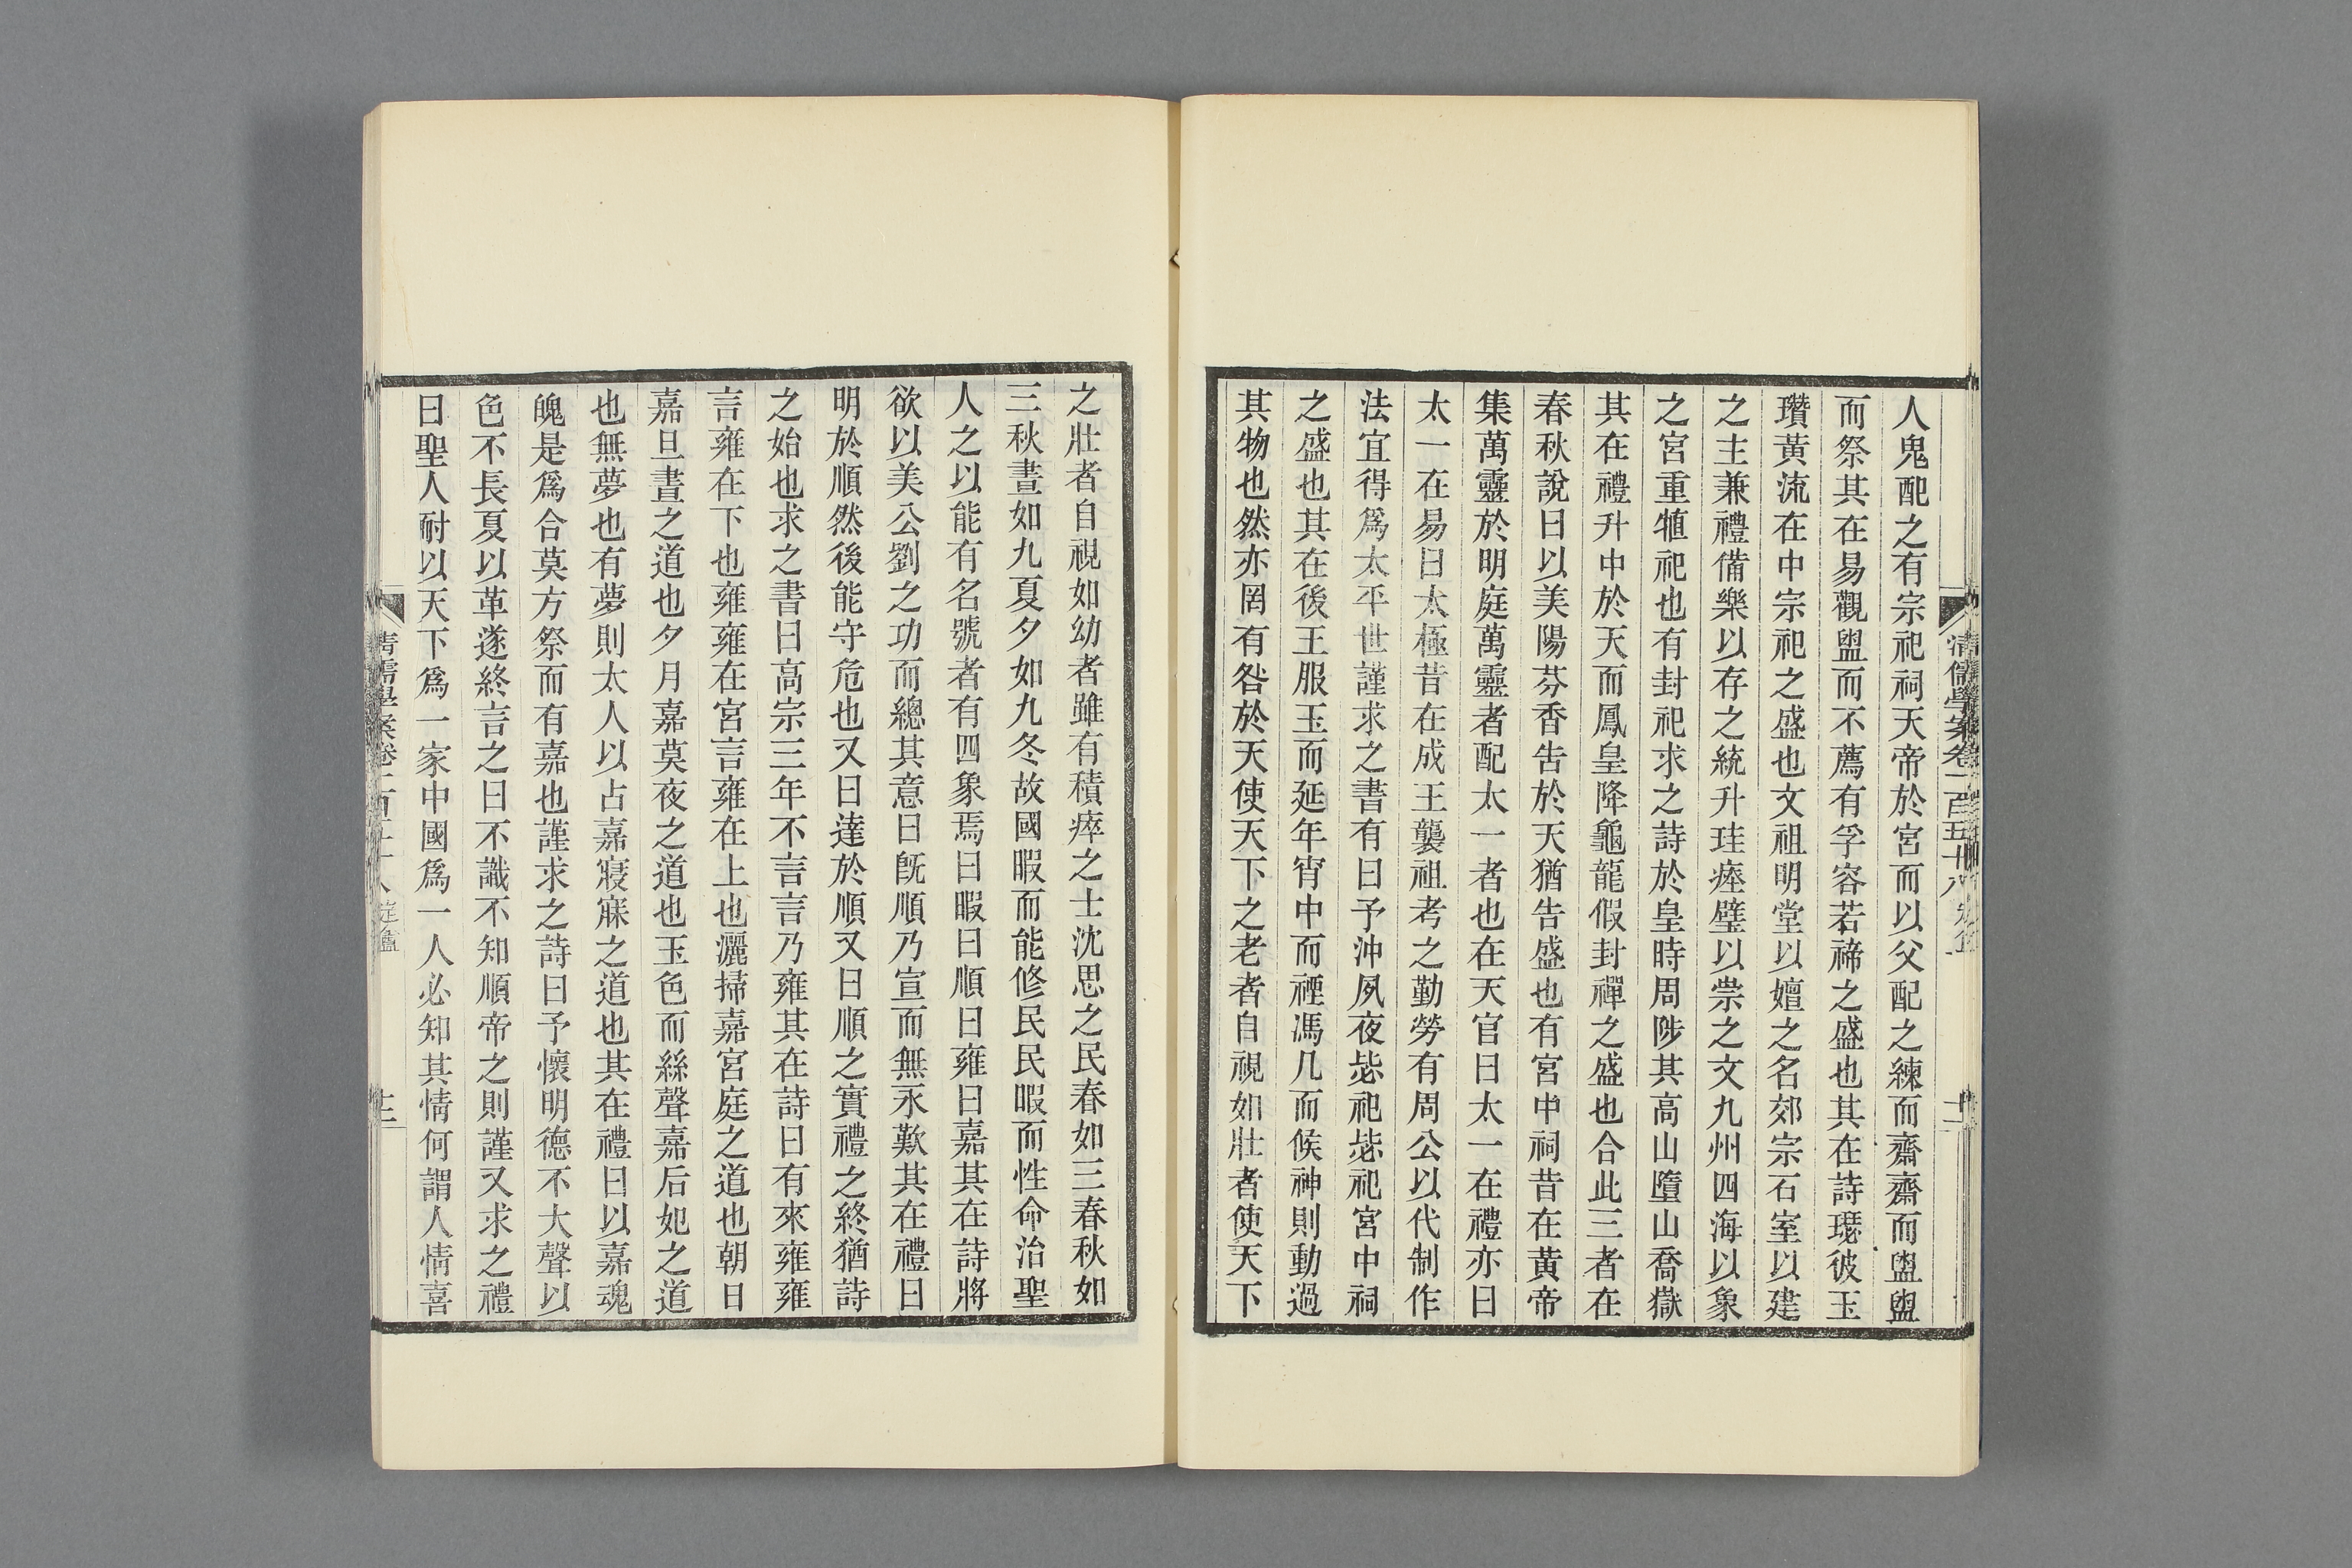 人鬼配之有宗祀祠天帝於宮而以父配之練而齋齋而盥盥
而祭其在易觀盥而不薦有孚容若禘之盛也其在詩瑟彼玉
瓚黃流在中宗祀之盛也文祖明堂以嬗之名郊宗石室以建
之主兼禮備樂以存之統升珪瘞璧以祟之文九州四海以象
之宮重犆祀也有封祀求之詩於皇時周陟其高山墮山喬嶽
其在禮升中於天而鳳皇降龜龍假封禪之盛也合此三者在
春秋說曰以美陽芬香告於天猶告盛也有宮中祠昔在黃帝
集萬靈於明庭萬靈者配太一者也在天官曰太一在禮亦曰
太一在易曰太極昔在成王襲祖考之勤勞有周公以代制作
法宜得爲太平世謹求之書有曰予沖夙夜毖祀毖祀宮中祠
之盛也其在後王服玉而延年宵中而禋馮几而候神則動過
其物也然亦罔有咎於天使天下之老者自視如壯者使天下
清儒學案卷一百五十八
十二
之壯者自視如幼者雖有積瘁之士沈思之民春如三春秋如
三秋晝如九夏夕如九冬故國暇而能修民民暇而性命治聖
人之以能有名號者有四象焉曰暇曰順曰雍曰嘉其在詩將
欲以美公劉之功而總其意曰旣順乃宣而無永歎其在禮曰
明於順然後能守危也又曰達於順又曰順之實禮之終猶詩
之始也求之書曰高宗三年不言言乃雍其在詩曰有來雍雍
言雍在下也雍雍在宮言雍在上也灑掃嘉宮庭之道也朝日
嘉旦晝之道也夕月嘉莫夜之道也玉色而絲聲嘉后妃之道
也無夢也有夢則太人以占嘉寢寐之道也其在禮曰以嘉魂
魄是爲合莫方祭而有嘉也謹求之詩曰予懷明德不大聲以
色不長夏以革遂終言之曰不識不知順帝之則謹又求之禮
曰聖人耐以天下爲一家中國爲一人必知其情何謂人情喜